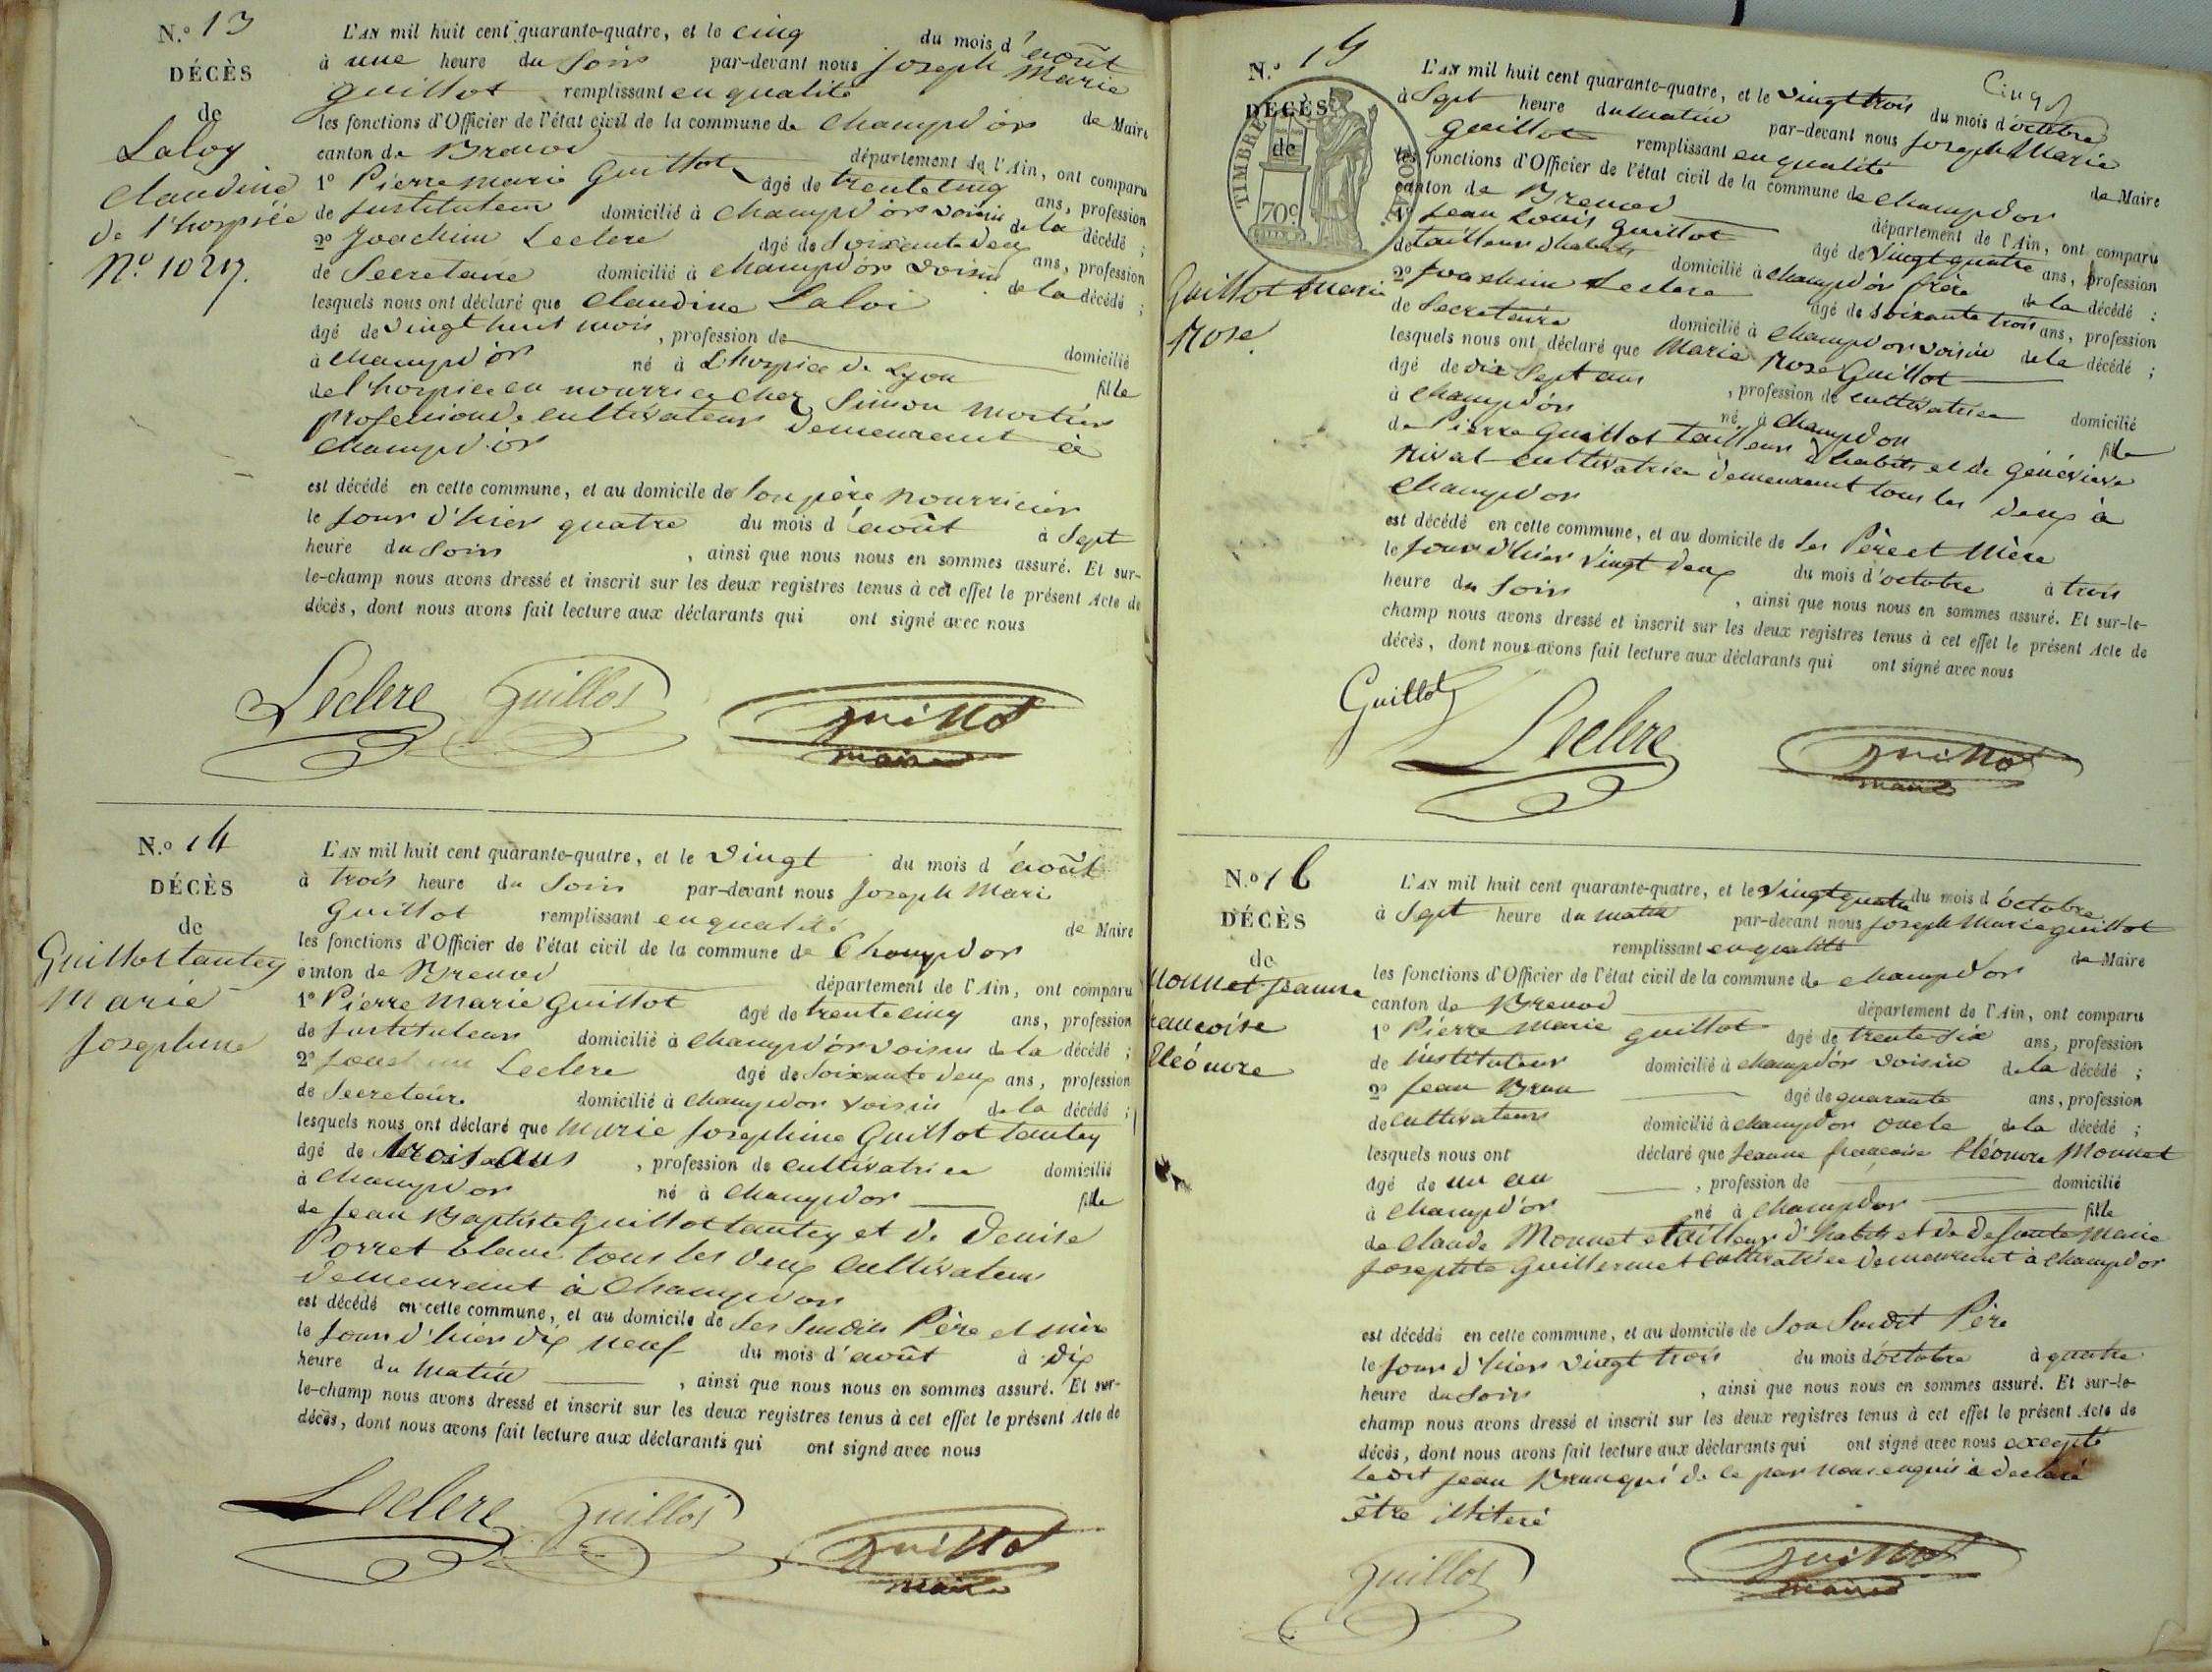 N.o 13
DÉCÈS
de
Laloy
Claudine
de l'hospice
No 10217.
L'AN mil huit cent quarante-quatre, et le cinq du mois d'août
à une heure du soir par-devant nous Joseph Marie
Guillot remplissant en qualité de Maire
les fonctions d'Officier de l'état civil de la commune de Champd'or
canton de Brenod département de l'Ain, ont comparu
1o Pierre Marie Guillot âgé de trente cinq ans, profession
de Instituteur domicilié à Champd'or voisin de la décédé ;
2o Joachim Leclere âgé de soixante deux ans, profession
de Secretaire domicilié à Champd'or voisin de la décédé ;
lesquels nous ont déclaré que Claudine Laloi
âgé de vingt huit mois, profession de domicilié
à Champd'or né à L'hospice de Lyon fille
de l'hospice en nourrice chez Simon Mortier
profession de cultivateur demeurant à
Champd'or
est décédé en cette commune, et au domicile de son père nourricier
le jour d'hier quatre du mois d'août à sept
heure du soir, ainsi que nous nous en sommes assuré. Et sur-
le-champ nous avons dressé et inscrit sur les deux registres tenus à cet effet le présent Acte de
décès, dont nous avons fait lecture aux déclarants qui ont signé avec nous
Leclere Guillot Guillot
maire
N.o 14
DÉCÈS
de
Guillot tantey
Marie
Josephine
L'AN mil huit cent quarante-quatre, et le vingt du mois d'août
à trois heure du soir par-devant nous Joseph Marie
Guillot remplissant en qualité de Maire
les fonctions d'Officier de l'état civil de la commune de Champdor
canton de Brenod département de l'Ain, ont comparu
1o Pierre Marie Guillot âgé de trente cinq ans, profession
de Instituteur domicilié à Champd'or voisin de la décédé ;
2o Joachim Leclere âgé de soixante deux ans, profession
de Secretaire domicilié à Champdor voisin de la décédé ;
lesquels nous ont déclaré que Marie Josephine Guillot tantey
âgé de trois ans, profession de cultivatrice domicilié
à Champdor né à Champdor fille
de Jean Baptiste Guillot tantey et de Denise
Porret blanc tous les deux Cultivateurs
demeurant à Champdor
est décédé en cette commune, et au domicile de ses susdits Père et mère
le jour d'hier dix neuf du mois d'août à dix
heure du matin, ainsi que nous nous en sommes assuré. Et sur-
le-champ nous avons dressé et inscrit sur les deux registres tenus à cet effet le présent Acte de
décès, dont nous avons fait lecture aux déclarants qui ont signé avec nous
Leclere Guillot Guillot
maire
Cinq
N.o 15
DÉCÈS
de
TIMBRE ROYAL
70c
Guillot Marie
Rose
L'AN mil huit cent quarante-quatre, et le vingt trois du mois d'octobre
à sept heure du matin par-devant nous Joseph Marie
Guillot remplissant en qualité de Maire
les fonctions d'Officier de l'état civil de la commune de Champdor
canton de Brenod département de l'Ain, ont comparu
1o Jean Louis Guillot âgé de vingt quatre ans, profession
de tailleur d'habits domicilié à Champd'or frère de la décédé ;
2o Joachim Leclere âgé de soixante trois ans, profession
de Secretaire domicilié à Champdor voisin de la décédé ;
lesquels nous ont déclaré que Marie Rose Guillot
âgé de dix sept ans, profession de cultivatrice domicilié
à Champd'or né à Champdor fille
de Pierre Guillot tailleur d'habits et de Généviève
Nivat cultivatrice demeurant tous les deux à
Champdor
est décédé en cette commune, et au domicile de ses Père et Mère
le jour d'hier vingt deux du mois d'octobre à trois
heure du soir, ainsi que nous nous en sommes assuré. Et sur-le-
champ nous avons dressé et inscrit sur les deux registres tenus à cet effet le présent Acte de
décès, dont nous avons fait lecture aux déclarants qui ont signé avec nous
Guillot Leclere Guillot
maire
N.o 16
DÉCÈS
de
Monnet Jeanne
rancoise
Eléonore
L'AN mil huit cent quarante-quatre, et le vingt quatre du mois d'octobre
à sept heure du matin par-devant nous Joseph Marie Guillot
remplissant en qualité de Maire
les fonctions d'Officier de l'état civil de la commune de Champd'or
canton de Brenod département de l'Ain, ont comparu
1o Pierre Marie Guillot âgé de trente six ans, profession
de instituteur domicilié à Champd'or voisin de la décédé ;
2o Jean Brun âgé de quarante ans, profession
de cultivateur domicilié à Champdor oncle de la décédé ;
lesquels nous ont déclaré que Jeanne françoise Eléonore Monnet
âgé de un an, profession de domicilié
à Champd'or né à Champdor fille
de Claude Monnet tailleur d'habits et de defunte Marie
Josephte Guillermet cultivatrice demeurant à Champdor
est décédé en cette commune, et au domicile de son susdit Père
le jour d'hier vingt trois du mois d'octobre à quatre
heure du soir, ainsi que nous nous en sommes assuré. Et sur-le-
champ nous avons dressé et inscrit sur les deux registres tenus à cet effet le présent Acte de
décès, dont nous avons fait lecture aux déclarants qui ont signé avec nous excepté
ledit Jean Brun qui de ce par nous enquis a déclaré
être illiteré
Guillot Guillot
maire